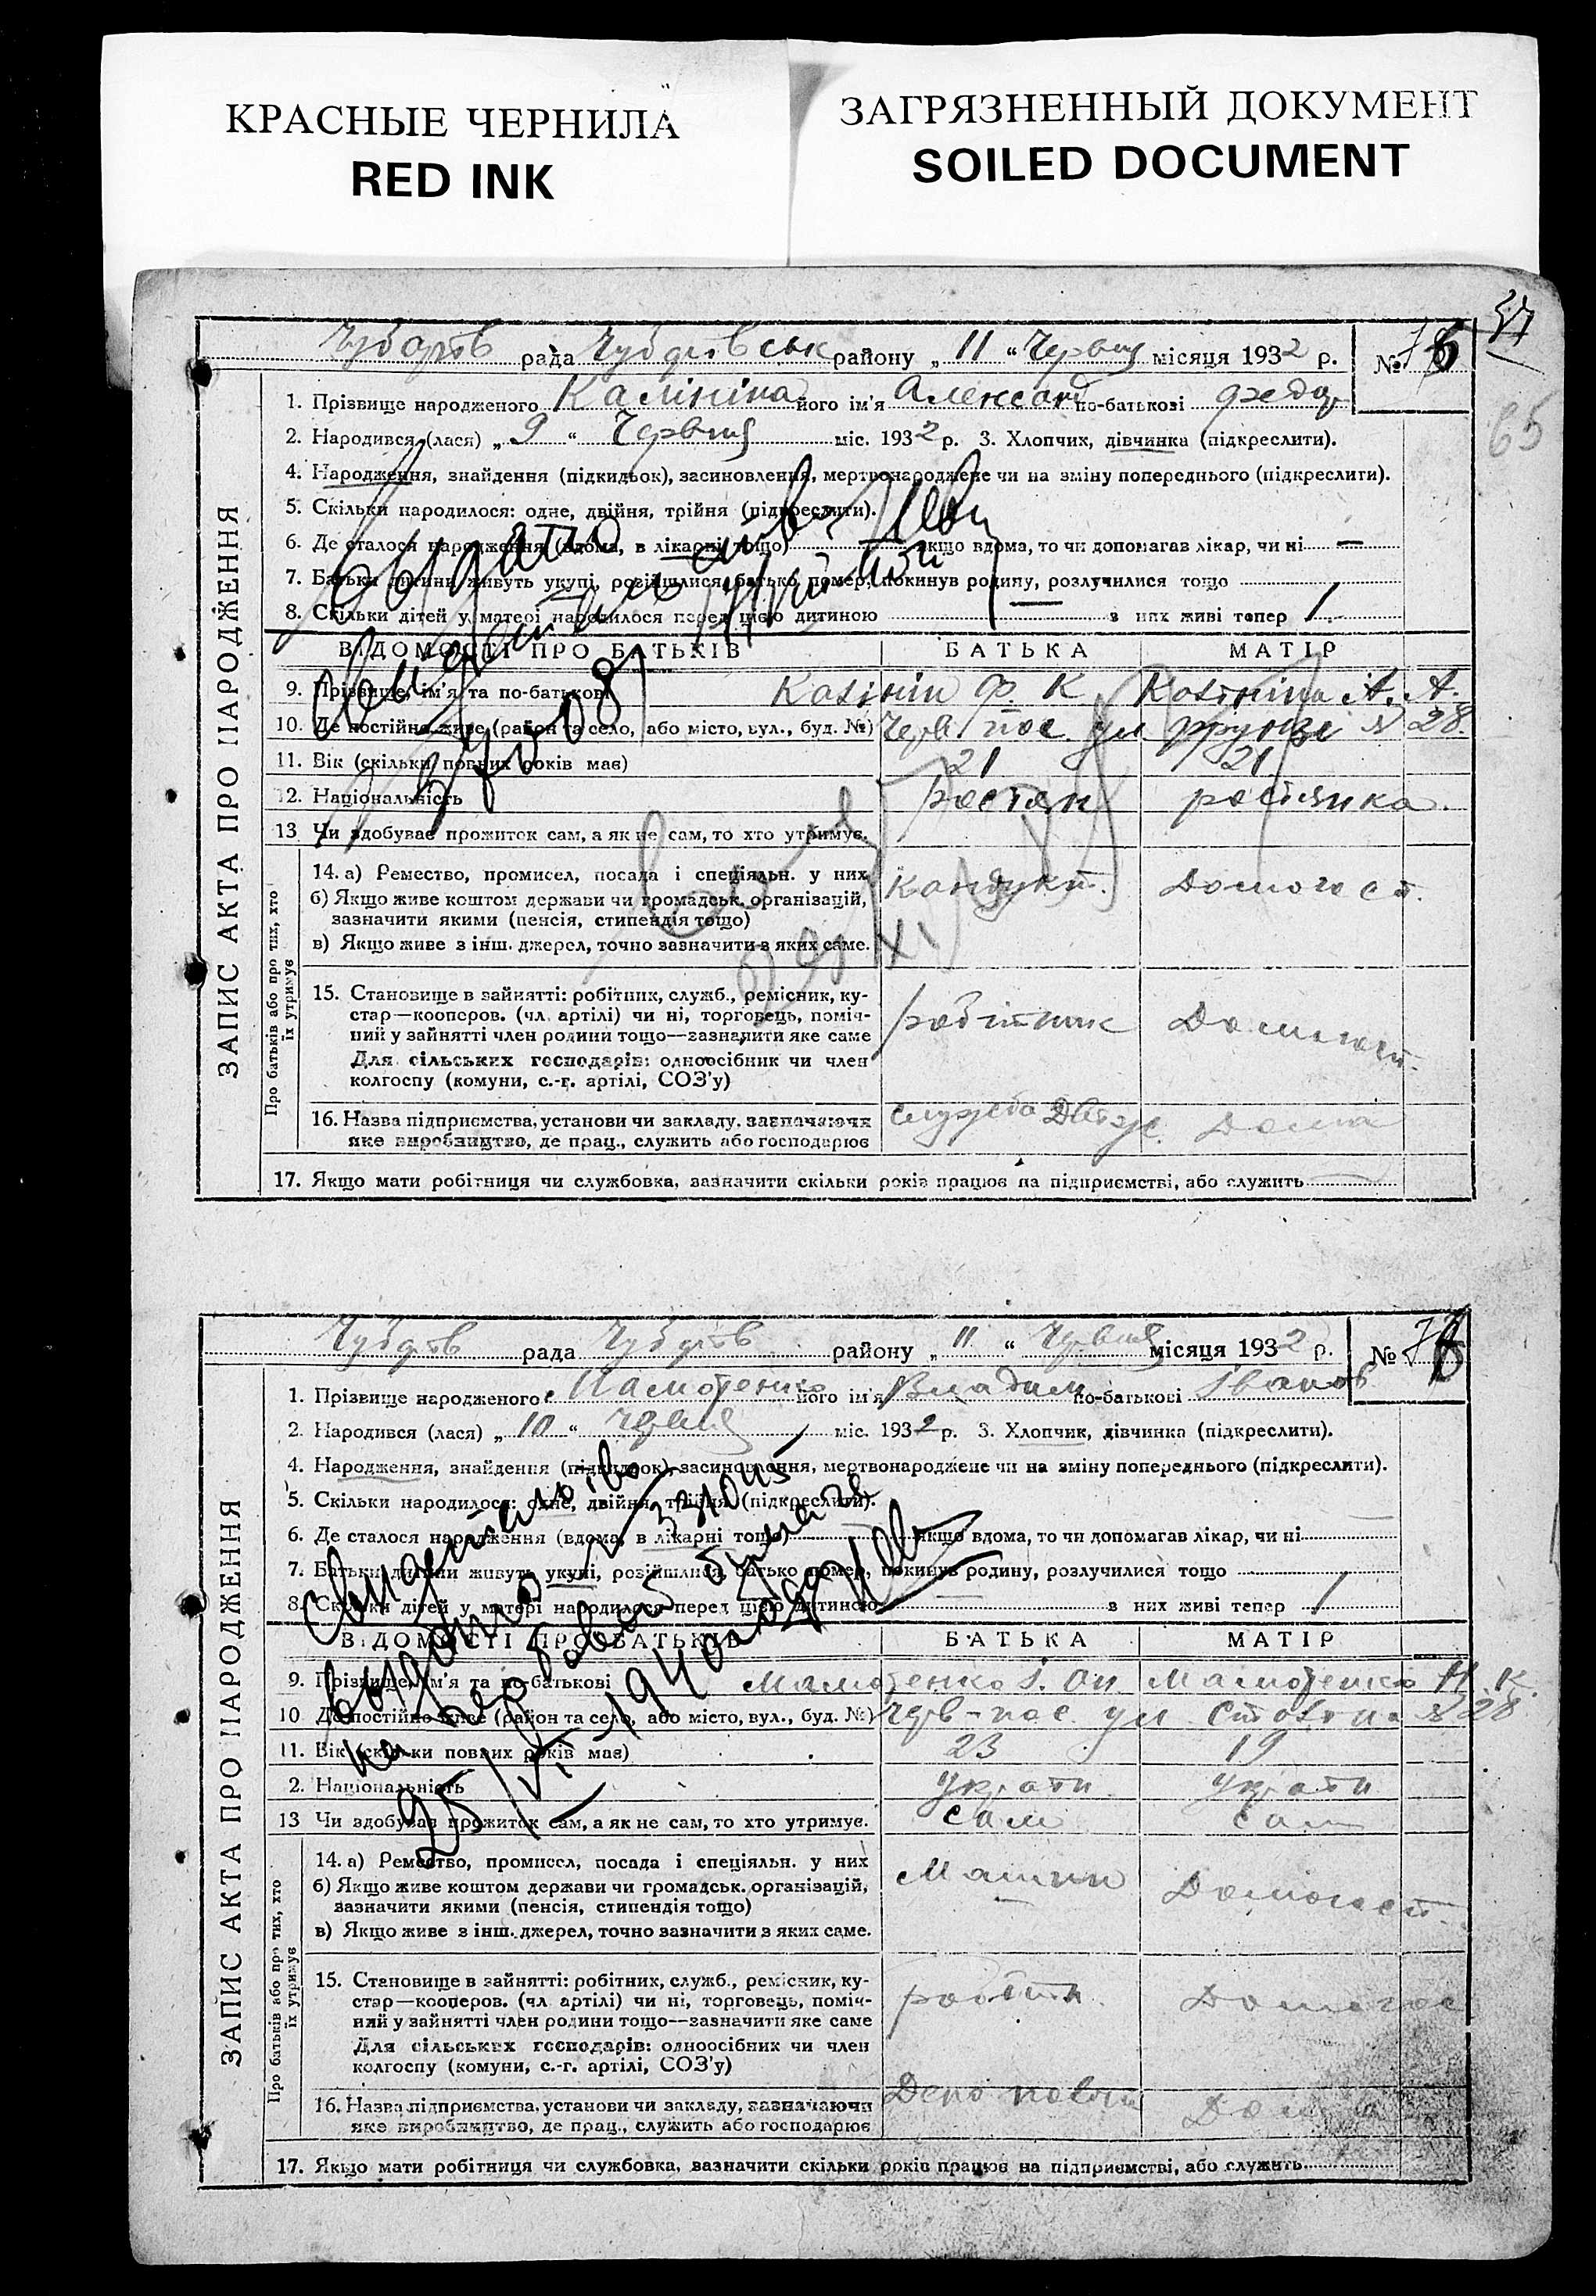 КРАСНЫЕ ЧЕРНИЛА
RED INK
ЗАГРЯЗНЕННЫЙ ДОКУМЕНТ
SOILED DOCUMENT
рада району „ 11 “ Червня місяця 1932 р. №
65
ЗАПИС АКТА ПРО НАРОДЖЕННЯ
1. Прізвище народженого Калініна його ім'я Александ по-батькові Федор
2. Народився (лася) „ 9 “ Червня міс. 1932 р. 3. Хлопчик, дівчинка (підкреслити).
4. Народження, знайдення (підкидьок), засиновлення, мертвонароджене чи на зміну попереднього (підкреслити).
5. Скільки народилося: одне, двійня, трійня (підкреслити).
6. Де сталося народження (вдома, в лікарні тощо) якщо вдома, то чи допомагав лікар, чи ні —
7. Батьки дитини живуть укупі, розійшлися, батько помер, покинув родину, розлучилися тощо
8. Скільки дітей у матері народилося перед цією дитиною — з них живі тепер 1
Выдано
свидетельство
ВІДОМОСТІ ПРО БАТЬКІВ БАТЬКА МАТІР
9. Прізвище, ім'я та по-батькові Калінін Ф. К Калініна А. А.
10. Де постійно живе (район та село, або місто, вул., буд. №) Черв пос ул Фрунзе № 28.
11. Вік (скільки повних років має) 21 21
12. Національність
13 Чи здобуває прожиток сам, а як не сам, то хто утримує.
Про батьків або про тих, хто їх утримує
14. а) Ремество, промисел, посада і спеціяльн. у них Кондукт. Домогост.
б) Якщо живе коштом держави чи громадськ. організацій,
зазначити якими (пенсія, стипендія тощо)
в) Якщо живе з інш. джерел, точно зазначити з яких саме.
15. Становище в зайнятті: робітник, служб., ремісник, ку-
стар—кооперов. (чл. артілі) чи ні, торговець, поміч- робітник Домогост.
ний у зайнятті член родини тощо—зазначити яке саме
Для сільських господарів: одноосібник чи член
колгоспу (комуни, с.-г. артілі, СОЗ'у)
16. Назва підприємства, установи чи закладу, зазначаючи служба Движ. Дома
яке виробництво, де прац., служить або господарює
17. Якщо мати робітниця чи службовка, зазначити скільки років працює на підприємстві, або служить
рада району „ 11 “ Червня місяця 1932 р. №
ЗАПИС АКТА ПРО НАРОДЖЕННЯ
1. Прізвище народженого його ім'я Владим по-батькові Іванов
2. Народився (лася) „ 10 “ Червня міс. 1932 р. 3. Хлопчик, дівчинка (підкреслити).
4. Народження, знайдення (підкидьок), засиновлення, мертвонароджене чи на зміну попереднього (підкреслити).
5. Скільки народилося: одне, двійня, трійня (підкреслити).
6. Де сталося народження (вдома, в лікарні тощо) якщо вдома, то чи допомагав лікар, чи ні
7. Батьки дитини живуть укупі, розійшлися, батько помер, покинув родину, розлучилися тощо
8. Скільки дітей у матері народилося перед цією дитиною — з них живі тепер 1
Свидетельство
выдано
25/VI - 1940 года
ВІДОМОСТІ ПРО БАТЬКІВ БАТЬКА МАТІР
9. Прізвище, ім'я та по-батькові Н. К.
10 Де постійно живе (район та село, або місто, вул., буд. №) Черв-пос ул Сталіна № 28
11. Вік (скільки повних років має) 23 19
2. Національність
13 Чи здобуває прожиток сам, а як не сам, то хто утримує. Сам Сам
Про батьків або про тих, хто їх утримує
14. а) Ремество, промисел, посада і спеціяльн. у них Машин Домогост.
б) Якщо живе коштом держави чи громадськ. організацій,
зазначити якими (пенсія, стипендія тощо)
в) Якщо живе з інш. джерел, точно зазначити з яких саме.
15. Становище в зайнятті: робітник, служб., ремісник, ку-
стар—кооперов. (чл артілі) чи ні, торговець, поміч- робітн. Домогос
ний у зайнятті член родини тощо—зазначити яке саме
Для сільських господарів: одноосібник чи член
колгоспу (комуни, с.-г. артілі, СОЗ'у)
16. Назва підприємства, установи чи закладу, зазначаючи Депо Дома
яке виробництво, де прац., служить або господарює
17. Якщо мати робітниця чи службовка, зазначити скільки років працює на підприємстві, або служить